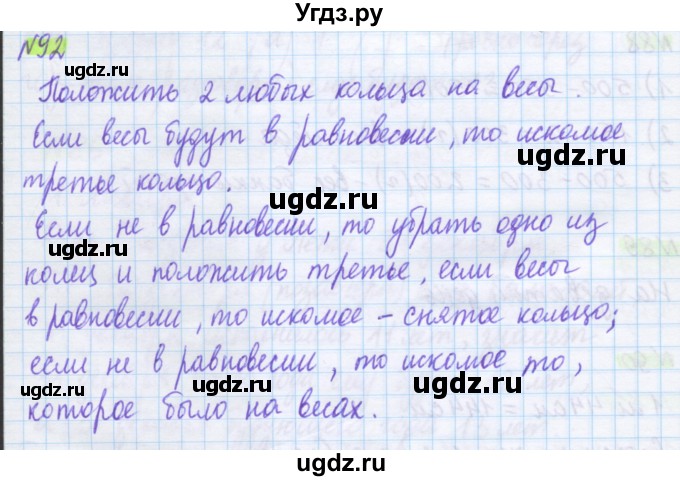 Угдз.ру
№92
Положить 2 любых кольца на весы.
Если весы будут в равновесии, то искомое
третье кольцо.
Если не в равновесии, то убрать одно из
колец и положить третье, если весы
в равновесии, то искомое – снятое кольцо;
если не в равновесии, то искомое то,
которое было на весах.
ugdz.ru
ugdz.ru
ugdz.ru
ugdz.ru
ugdz.ru
ugdz.ru
ugdz.ru
ugdz.ru
ugdz.ru
ugdz.ru
ugdz.ru